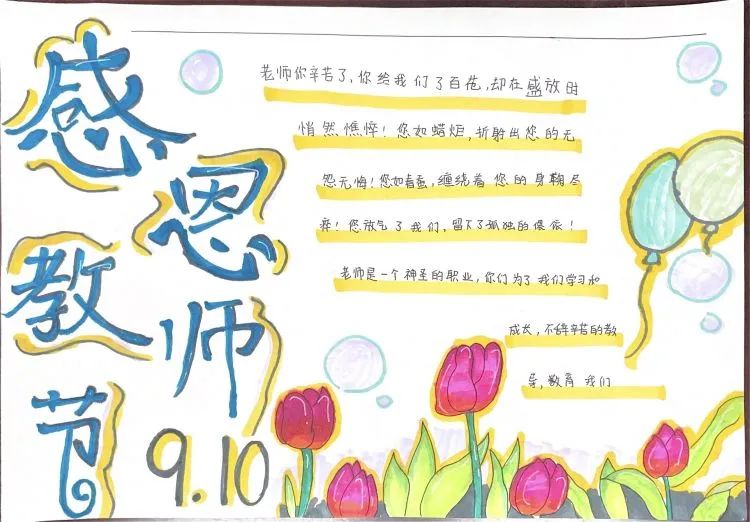 感恩教师节
9.10
老师你辛苦了,你给我们了百花,却在盛放时
悄然憔悴!您如蜡炬,折射出您的无
怨无悔!您如春蚕,缠绕着您的身鞠尽
瘁!您放气了我们,留下了孤独的
老师是一个神圣的职业,你们为了我们学习和
成长,不辞辛苦的教
导,教育我们